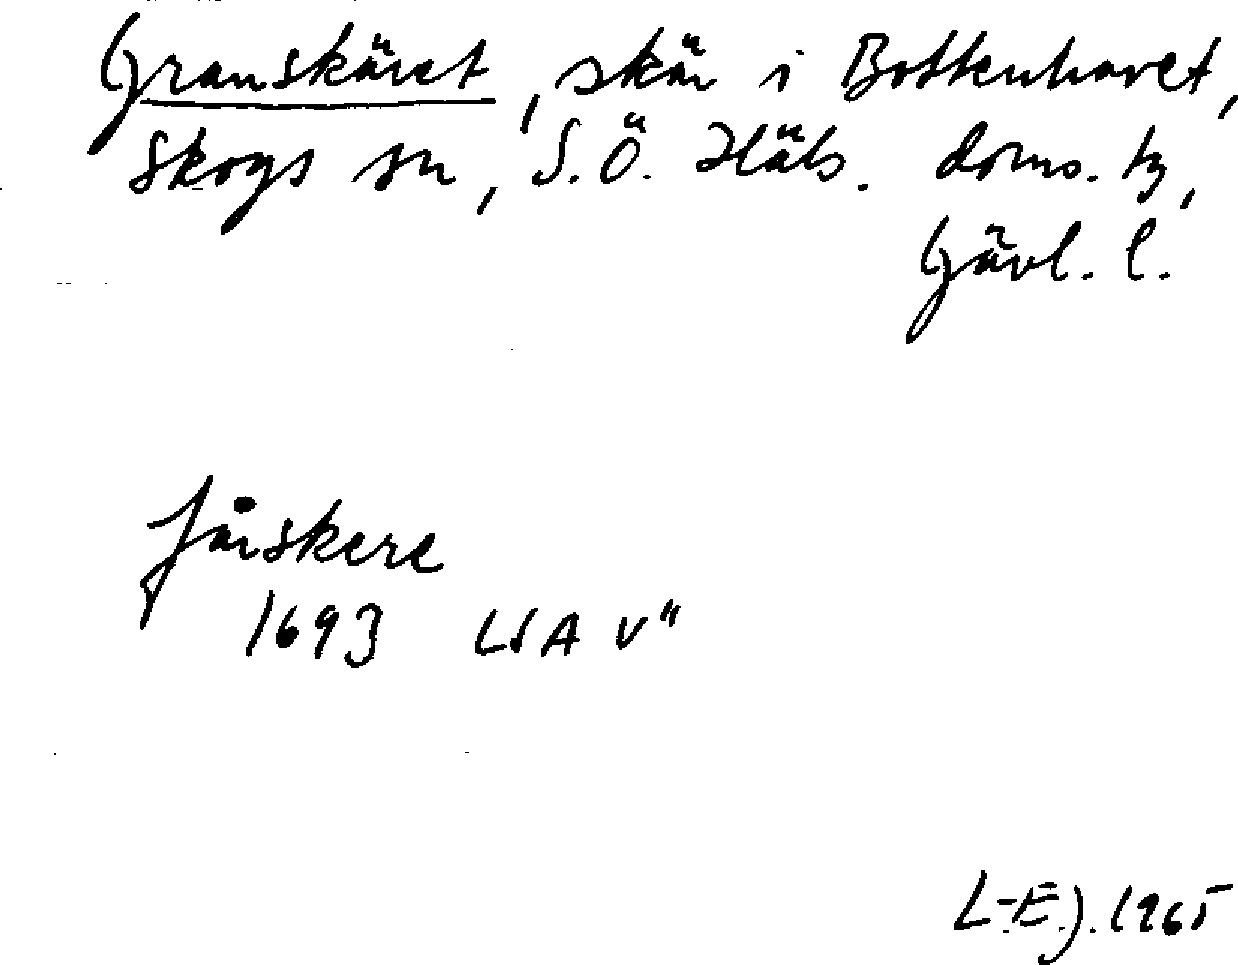 Granskäret, skär i Bottenhavet,
Skogs sn, S.Ö. Häls. doms. tg,
Gävl. l.
Fårskere
1693 LSA V"
L-EJ. 1965